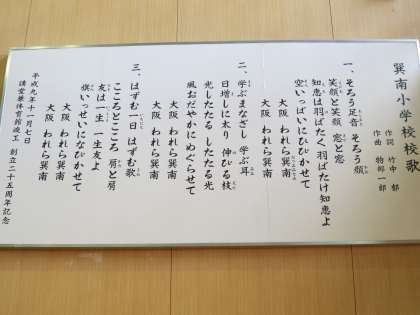 巽南小学校校歌
作詞 竹中 郁
作曲 物部一郎
一、そろう足音 そろう顔
笑顔と笑顔 窓と窓
知恵は羽ばたく 羽ばたけ知恵よ
空いっぱいにひびかせて
大阪 われら巽南
大阪 われら巽南
二、学ぶまなざし 学ぶ耳
日増しに太り 伸びる枝
光したたる したたる光
風おだやかにめぐらせて
大阪 われら巽南
大阪 われら巽南
三、はずむ一日 はずむ歌
こころとこころ 肩と肩
友は一生 一生友よ
旗いっせいになびかせて
大阪 われら巽南
大阪 われら巽南
平成九年十一月七日
講堂兼体育館竣工 創立二十五周年記念